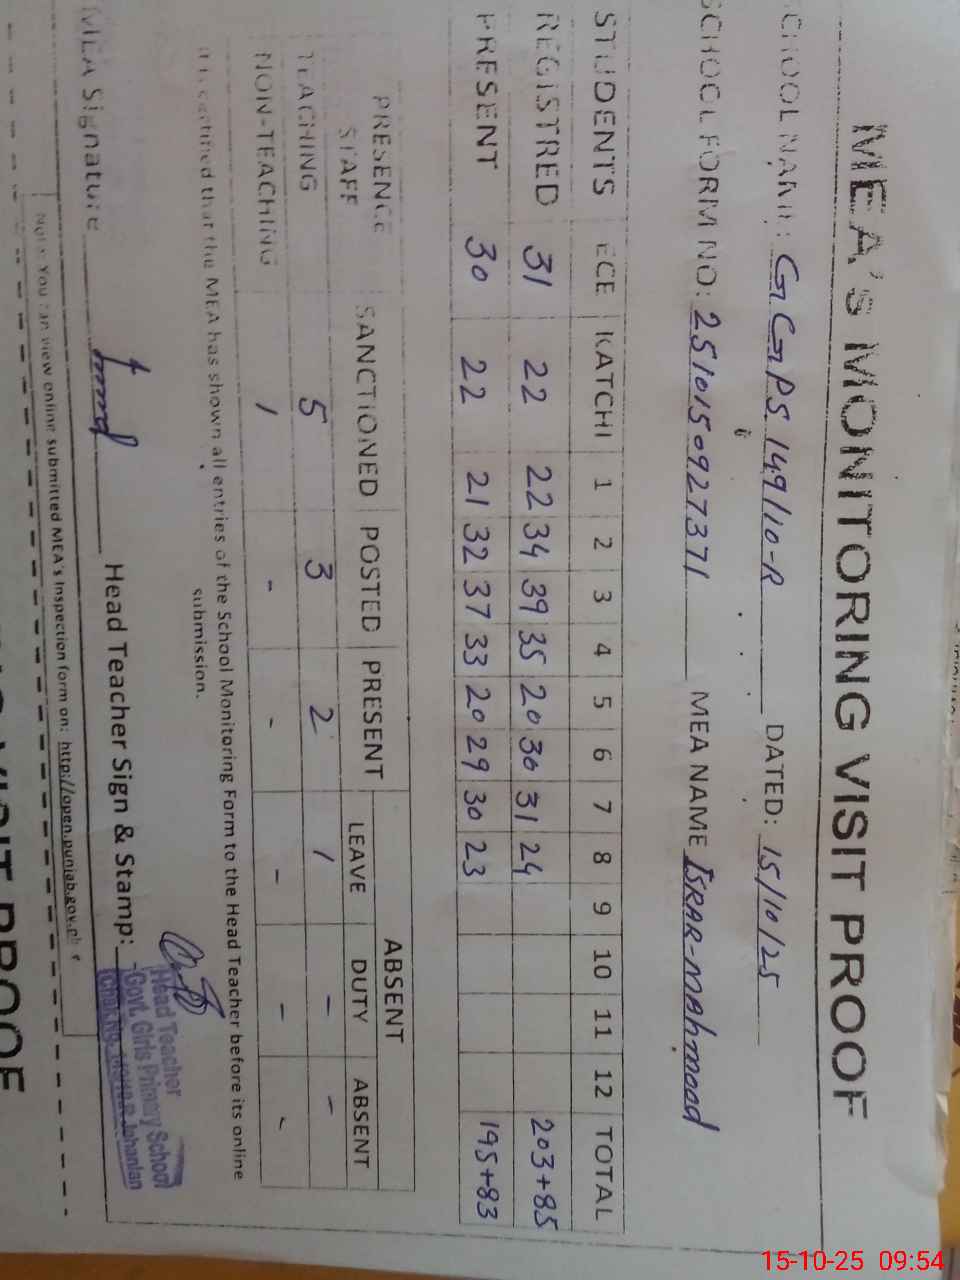 MEA's MONITORING VISIT PROOF
SCHOOL NAME: GGPS 149/10-R DATED: 15/10/25
SCHOOL FORM NO: 2510150927371 MEA NAME ISRAR-MAhmood
STUDENTS ECE KATCHI 1 2 3 4 5 6 7 8 9 10 11 12 TOTAL
REGISTRED 31 22 22 34 39 35 20 30 31 24 203+85
PRESENT 30 22 21 32 37 33 20 29 30 23 195+83
ABSENT
PRESENCE STAFF SANCTIONED POSTED PRESENT LEAVE DUTY ABSENT
TEACHING 5 3 2 1 - -
NON-TEACHING 1 - - - - -
It is certified that the MEA has shown all entries of the School Monitoring Form to the Head Teacher before its online
submission.
MEA Signature Head Teacher Sign & Stamp:
Head Teacher
Govt. Girls Primary School
Chak No. Jehanian
Note: You can view online submitted MEA's Inspection form on: http://open.punjab.gov.pk
VISIT PROOF
15-10-25 09:54